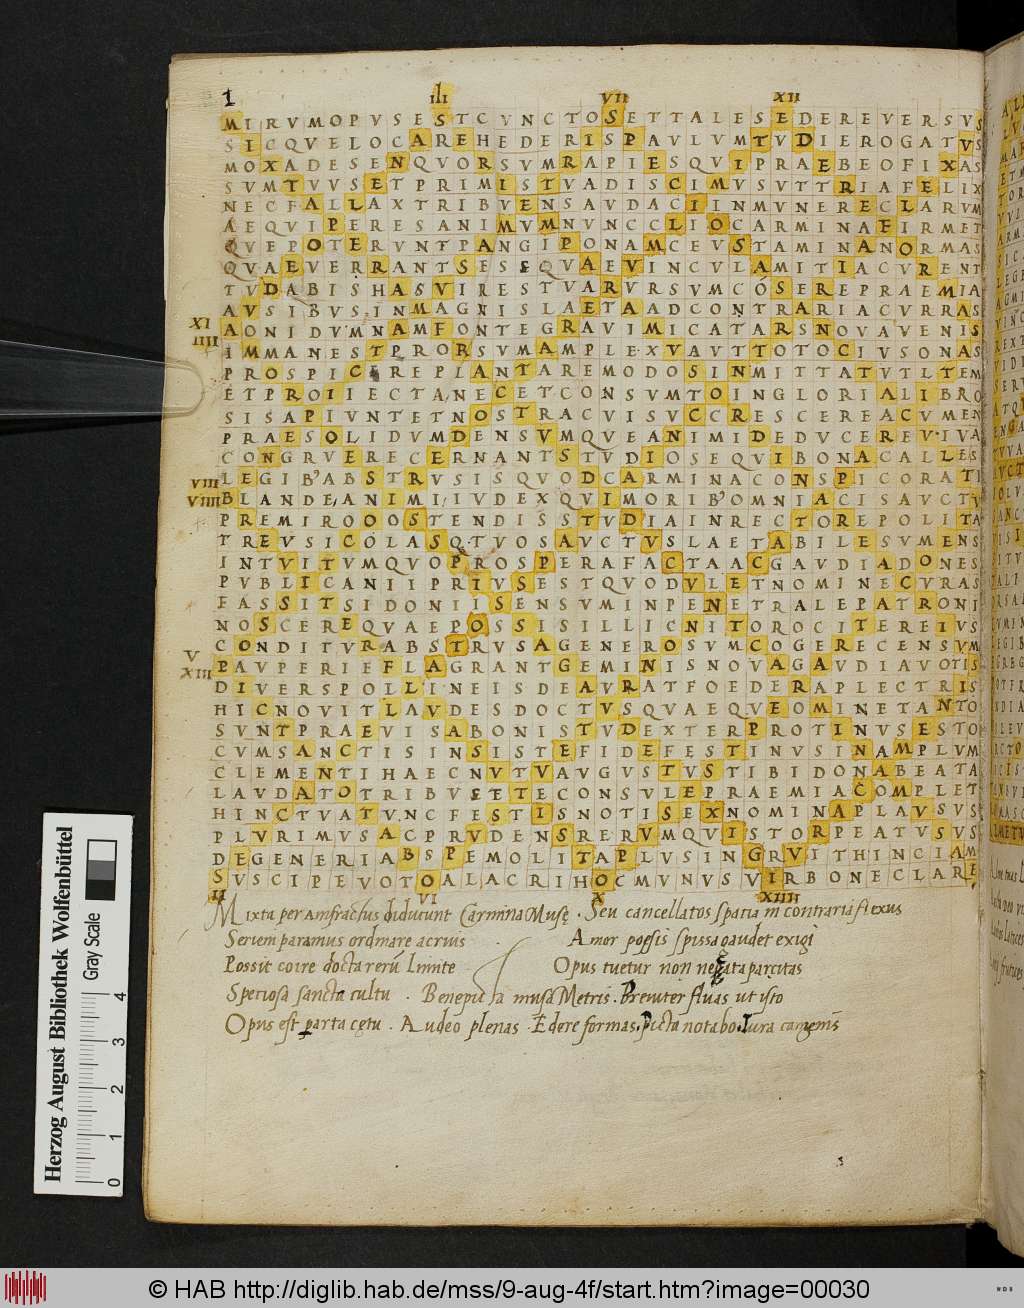 1 III VII XII
MIRVMOPVSESTCVNCTOSETTALESEDEREVERSVS
SICQVELOCAREHEDERISPAVLVMTVDIEROGATVS
MOXADESENQVORSVMRAPIESQVIPRAEBEOFIXAS
SVMTVVSETPRIMISTVADISCIMVSVTTRIAFELIX
NECFALLAXTRIBVENSAVDACIINMVNERECLARVM
AEQVIPERESANIMVMNVNCCLIOCARMINAFIRMET
QVEPOTERVNTPANGIPONAMCEVSTAMINANORMAS
QVAEVERRANTSESEQVAEVINCVLAMITIACVRENT
TVDABISHASVIRESTVARVRSVMCOSEREPRAEMIA
AVSIBVSINMAGNISLAETAADCONTRARIACVRRAS
XI AONIDVMNAMFONTEGRAVIMICATARSNOVAVENIS
IIII IMMANESTPRORSVMAMPLEXVAVTTOTOCIVSONAS
PROSPICEREPLANTAREMODOSINMITTATVTLTEM
ETPROIIECTANECETCONSVMTOINGLORIALIBRO
SISAPIVNTETNOSTRACVISVCCRESCEREACVMEN
PRAESOLIDVMDENSVMQVEANIMIDEDVCEREVIVA
CONGRVERECERNANTSTVDIOSEQVIBONACALLES
VIII LEGIB'ABSTRVSISQVODCARMINACONSPICORATI
VIIII BLANDEANIMIIVDEXQVIMORIB'OMNIACISAVCTV
PREMIROOOSTENDISSTVDIAINRECTOREPOLITA
TREVSICOLASQTVOSAVCTVSLAETABILESVMENS
INTVITVMQVOPROSPERAFACTAACGAVDIADONES
PVBLICANIIPRIVSESTQVODVLETNOMINECVRAS
FASSITSIDONIISENSVMINPENETRALEPATRONI
NOSCEREQVAEPOSSISILLICNITOROCITEREIVS
V CONDITVRABSTRVSAGENEROSVMCOGERECENSVM
XIII PAVPERIEFLAGRANTGEMINISNOVAGAVDIAVOTIS
DIVERSPOLLINEISDEAVRATFOEDERAPLECTRIS
HICNOVITLAVDESDOCTVSQVAEQVEOMINETANTO
SVNTPRAEVISABONISTVDEXTERPROTINVSESTO
CVMSANCTISINSISTEFIDEFESTINVSINAMPLVM
CLEMENTIHAECNVTVAVGVSTVSTIBIDONABEATA
LAVDATOTRIBVSETECONSVLEPRAEMIACOMPLET
HINCTVATVNCFESTISNOTISEXNOMINAPLAVSVS
PLVRIMVSACPRVDENSRERVMQVISTORPEATVSVS
DEGENERIABSPEMOLITAPLVSINGRVITHINCIAM
SVSCIPEVOTOALACRIHOCMVNVSVIRBONECLARE
II VI X XIIII
Mixta per Amfractus diducunt Carmina Musę . Seu cancellatos spatia in contraria flexus
Seriem paramus ordinare acrius . Amor poesis spissa gaudet exigi
Possit coire docta rerū limite Opus tuetur non negata parcitas
Speciosa sancta cultu . musa Metris . Breviter fluas ut isto
Opus est parta cętu . Audeo plenas . Edere formas . Picta notabo . Iura camęnis
Herzog August Bibliothek Wolfenbüttel
Gray Scale
0 1 2 3 4
© HAB http://diglib.hab.de/mss/9-aug-4f/start.htm?image=00030